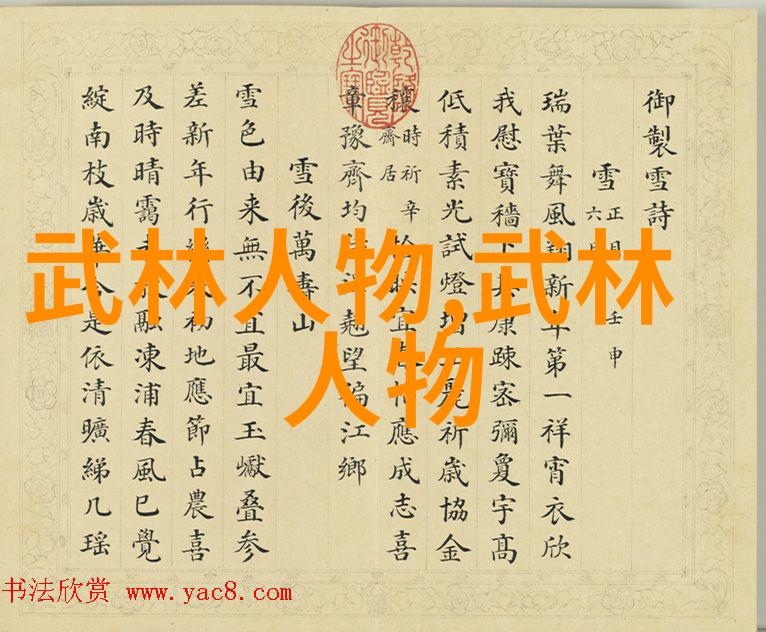 武林人物,武林
人物
乾隆御覽之寶
御製雪詩
雪 正月 壬申
瑞葉舞風翔新年第一祥宵衣欣
我慰寶穡下共康疎密彌夐宇高
低積素光試燈增麗祈歲協金
穰 時祈辛 齋居 宜應成志喜
章豫齊均翹望徧江鄉
雪後萬壽山
雪色由来無不宜最宜玉巘叠参
差新年行初地應節占農喜
及時晴靄融凍浦春風已覺
綻南枝歲華今是依清曠綈几瑶
书法欣赏 www.yac8.com